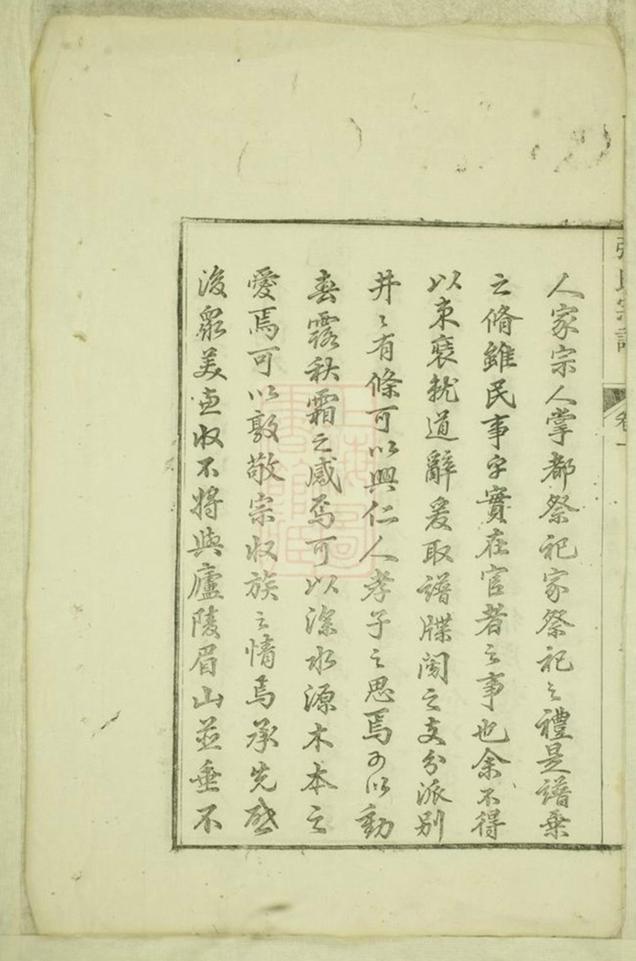 張氏宗譜
卷一
人家宗人掌都祭祀家祭祀之禮是譜乗
之脩雖民事乎實在官者之事也余不得
以束裝就道辭爰取譜牒閱之支分派別
井々有條可以興仁人孝子之思焉可以動
春露秋霜之感焉可以深水源木本之
愛焉可以敦敬宗收族之情焉承先啟
後衆美畢收不將與廬陵眉山並垂不